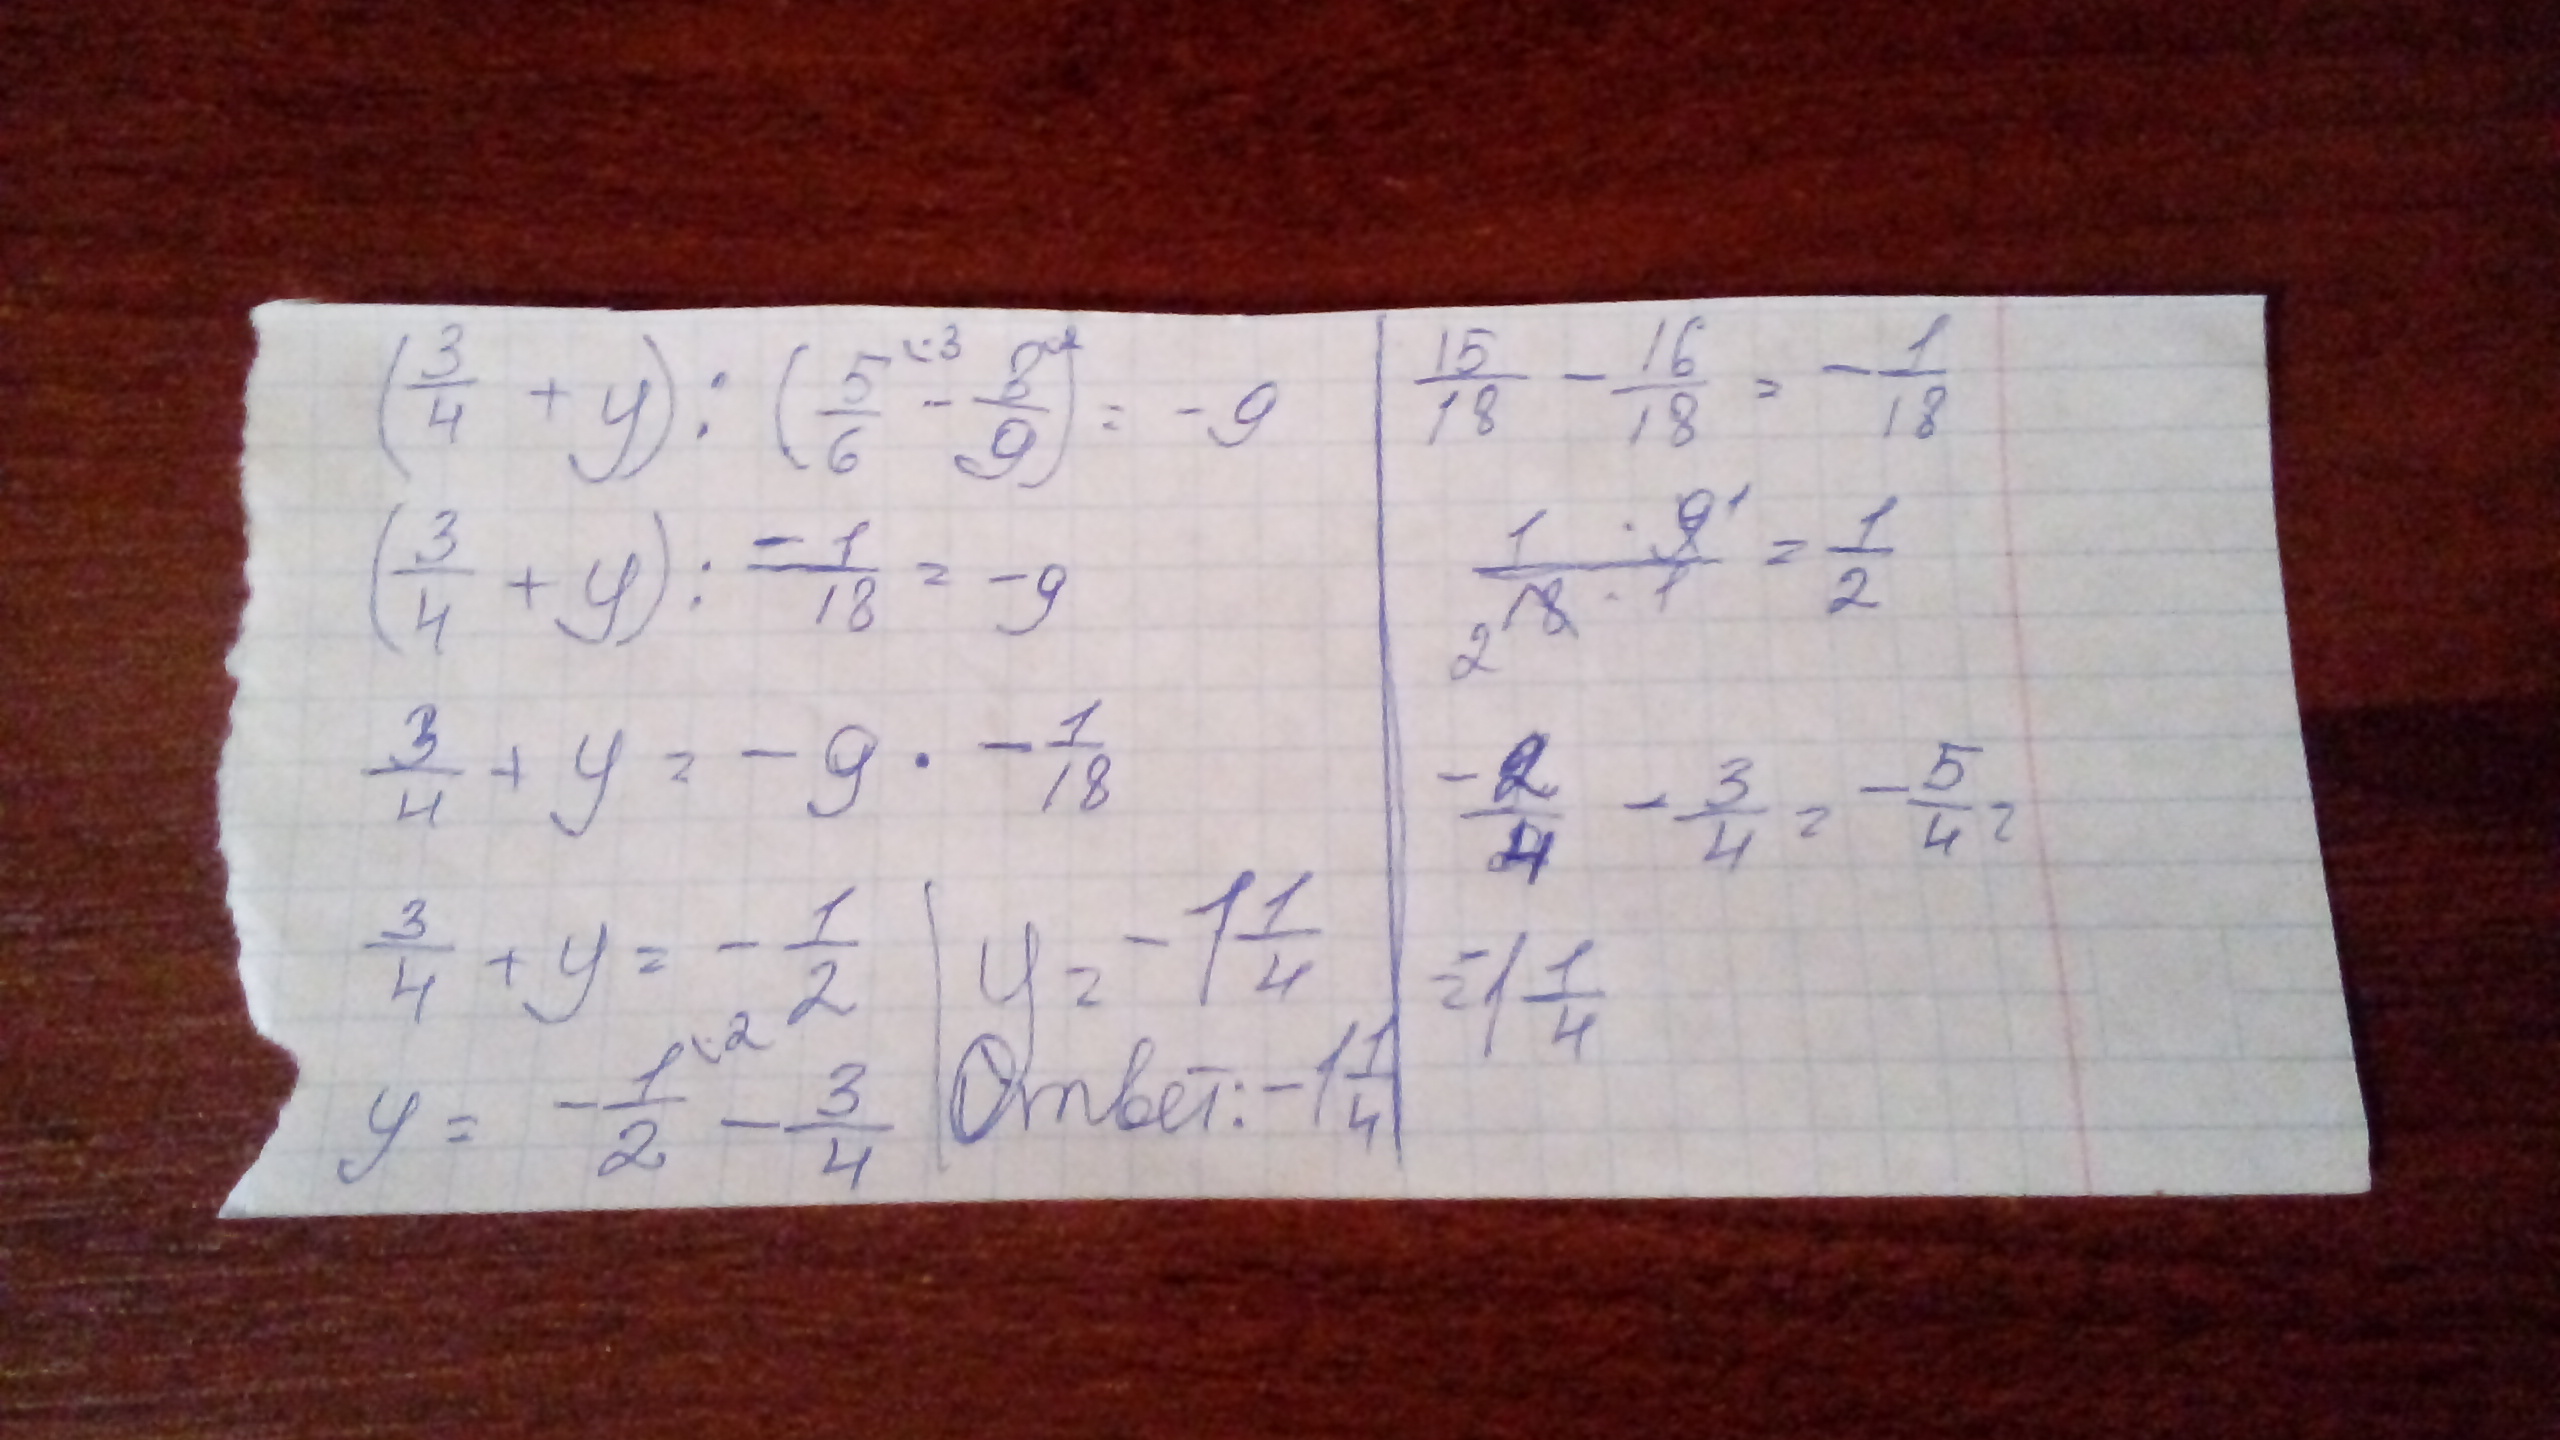 (3/4 + y) : (5/6 ^·3 - 8/9 ^·2) = -9
(3/4 + y) : -1/18 = -9
3/4 + y = -9 · -1/18
3/4 + y = -1/2
y = -1/2 ^·2 - 3/4
y = -1 1/4
Ответ: -1 1/4
15/18 - 16/18 = -1/18
1 · 9 ^1 / 2 18 · 1 = 1/2
-2/4 - 3/4 = -5/4 =
= -1 1/4